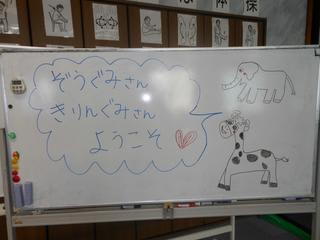 ぞうぐみさん
きりんぐみさん
ようこそ